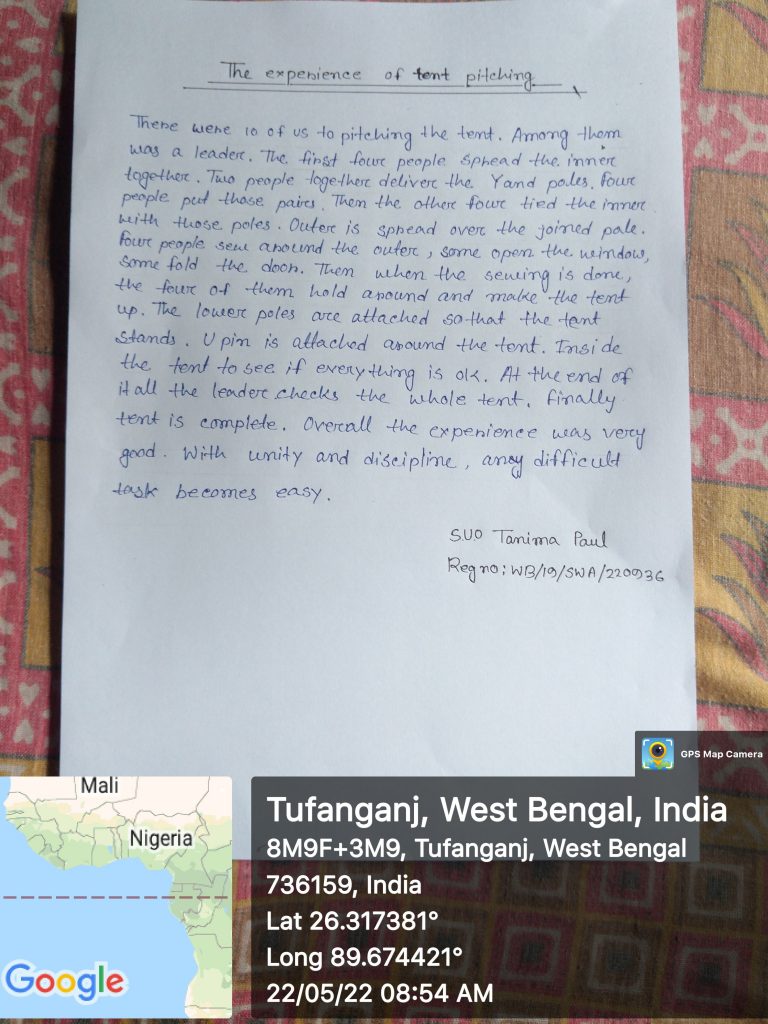 The experience of tent pitching
There were 10 of us to pitching the tent. Among them
was a leader. The first four people spread the inner
together. Two people together deliver the Yand poles. four
people put those pairs. Then the other four tied the inner
with those poles. Outer is spread over the joined pale.
four people sew around the outer, some open the window,
some fold the door. Then when the sewing is done,
the four of them hold around and make the tent
up. The lower poles are attached so that the tant
stands. U pin is attached around the tent. Inside
the tent to see if everything is ok. At the end of
it all the leader checks the whole tent. finally
tent is complete. Overall the experience was very
good. With unity and discipline, any difficult
task becomes easy.
S.U.O Tanima Paul
Reg no: WB/19/SWA/220936
GPS Map Camera
Mali
Nigeria
Google
Tufanganj, West Bengal, India
8M9F+3M9, Tufanganj, West Bengal
736159, India
Lat 26.317381°
Long 89.674421°
22/05/22 08:54 AM